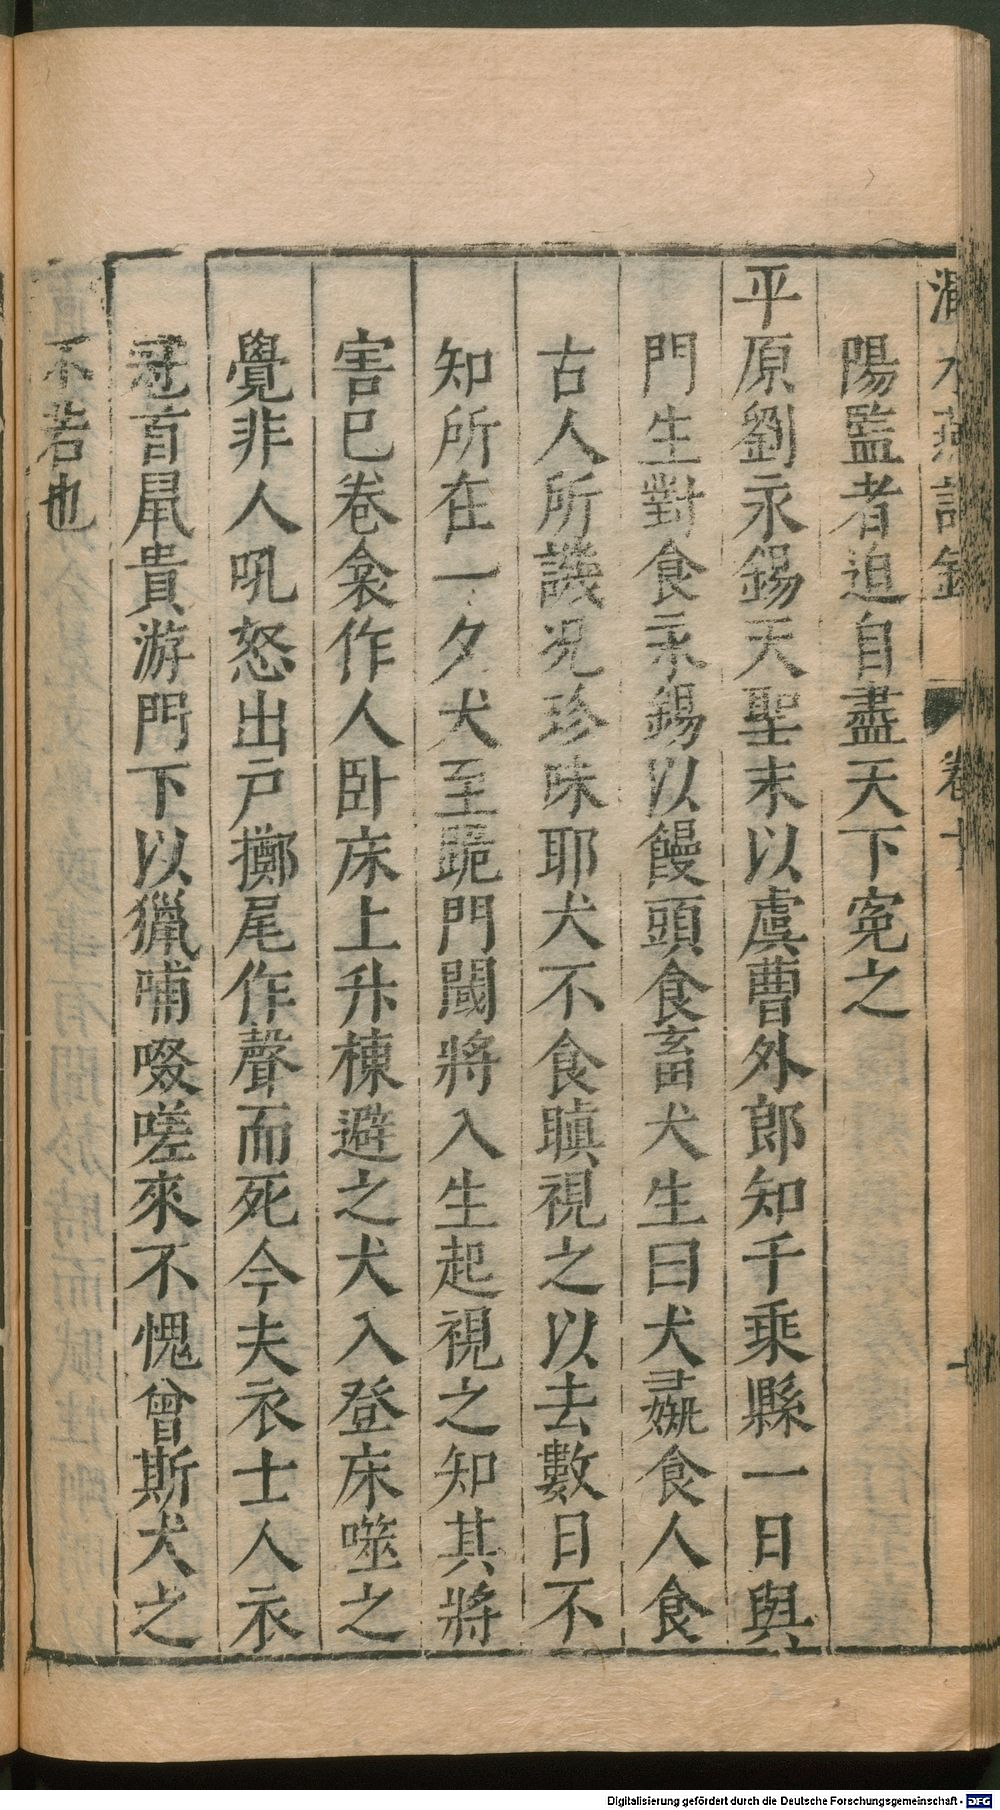 陽監者迫自盡天下冤之
平原劉永錫天聖末以虞曹外郎知千乘縣一日與
門生對食永錫以饅頭食畜犬生曰犬彘食人食
古人所譏况珍味耶犬不食瞋視之以去數日不
知所在一夕犬至跪門閾將入生起視之知其將
害已卷衾作人卧床上升棟避之犬入登床噬之
覺非人吼怒出戸擲尾作聲而死今夫衣士人衣
冠首鼠貴游門下以獵哺啜嗟來不愧曾斯犬之
不若也
Digitalisierung gefördert durch die Deutsche Forschungsgemeinschaft - DFG